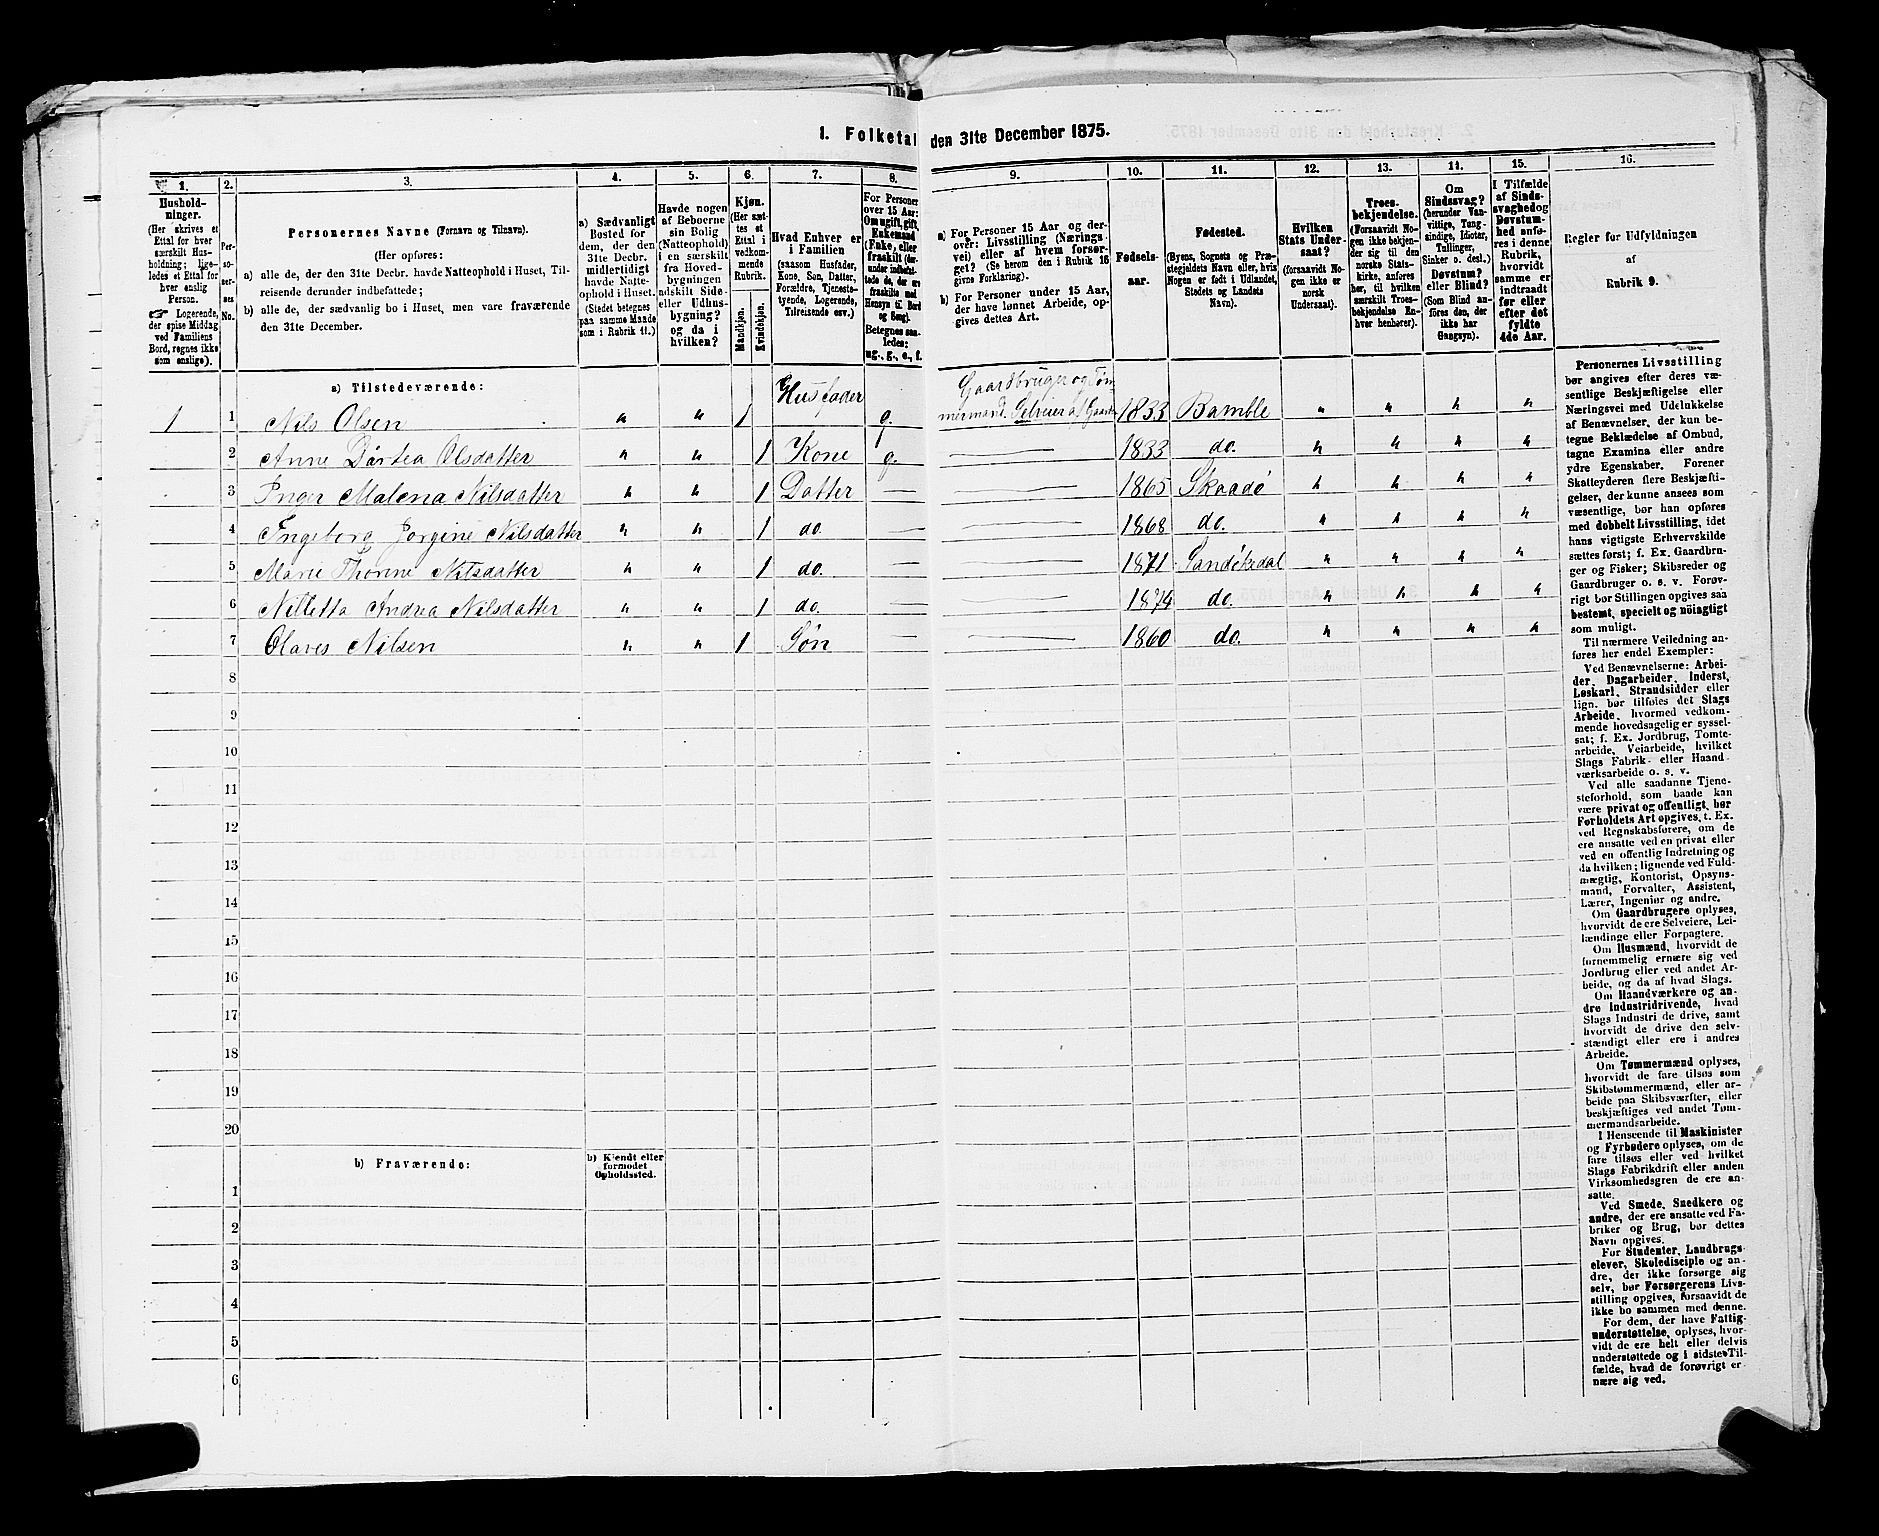 1. Folketal den 31te December 1875.
1. 2. 3. 4. 5. 6. 7. 8. 9. 10. 11. 12. 13. 14. 15. 16.
Hushold-
ninger.
(Her skrives et
Ettal for hver
særskilt Hus-
holdning; lige-
ledes et Ettal
for hver
enslig
Person.
☞ Logerende,
der spise Middag
ved Familiens
Bord, regnes ikke
som enslige).
Per-
so-
ner-
nes
No.
Personernes Navne (Fornavn og Tilnavn).
(Her opføres:
a) alle de, der den 31te Decbr. havde Natteophold i Huset, Til-
reisende derunder indbefattede;
b) alle de, der sædvanlig bo i Huset, men vare fraværende
den 31te December.
a) Sædvanligt
Bosted for
dem, der den
31te Decbr.
midlertidigt
havde Natte-
ophold i Huset.
(Stedet betegnes
paa samme Maade
som i Rubrik 11.)
Havde nogen
af Beboerne
sin Bolig
(Natteophold)
i en særskilt
fra Hoved-
bygningen
adskilt Side-
eller Udhus-
bygning?
og da i
hvilken?
Kjøn.
(Her sæt-
tes et
Ettal i
vedkom-
mende
Rubrik.
Mandkjøn.
Kvindekjøn.
Hvad Enhver er
i Familien
(saasom Husfader,
Kone, Søn, Datter,
Forældre, Tjeneste-
tyende, Logerende,
Tilreisende osv.)
For Personer
over 15 Aar:
Om ugift, gift,
Enkemand
(Enke, eller
fraskilt
Betegnes saa-
ledes:
ug., g., e., f.
a) For Personer 15 Aar og der-
over: Livsstilling (Nærings
vei) eller af hvem forsør-
get? (Se herom den i Rubrik 16
givne Forklaring).
b) For Personer under 15 Aar,
der have lønnet Arbeide, op-
gives dettes Art.
Fødsels-
aar.
Fødested.
(Byens, Sognets og Præ-
stegjeldets Navn eller, hvis
Nogen er født i Udlandet,
Stedets og Landets
Navn).
Hvilken
Stats Under-
saat?
(forsaavidt No-
gen ikke er
norsk
Undersaat).
Troes-
bekjendelse.
(Forsaavidt No-
gen ikke bekjen-
der sig til den
norske Stats-
kirke, anføres
her, til hvilken
særskilt Troes-
bekjendelse En-
hver henhører).
Om
Sindssvag?
(herunder Van-
vittige, Tung-
sindige, Idioter,
Tullinger,
Sinker o. desl.)
Døvstum?
eller Blind?
(Som Blind an-
føres den, der
ikke har
Gangsyn).
I Tilfælde
af Sinds-
svaghed og
Døvstum-
hed anfø-
res i denne
Rubrik,
hvorvidt
samme er
indtraadt
før eller
efter det
fyldte
4de Aar.
Regler for Udfyldningen
af
Rubrik 9.
a) Tilstedeværende:
1 1 Nils Olsen " " 1 Husfader g. Gaardbruger og Tøm
mermand. Selveier af Gaarden 1833 Bamble " " " "
2 Anne Dortea Olsdatter " " 1 Kone g. — 1833 do. " " " "
3 Inger Malena Nilsdatter " " 1 Datter — — 1865 Skaadø " " " "
4 Ingeborg Jorgine Nilsdatter " " 1 do. — — 1868 do. " " " "
5 Marie Thorine Nilsdatter " " 1 do. — — 1871 Sandøkedal " " " "
6 Nilletta Andrea Nilsdatter " " 1 do. — — 1874 do. " " " "
7 Olaves Nilsen " " 1 Søn — — 1860 do. " " " "
8
9
10
11
12
13
14
15
16
17
18
19
20
b) Fraværende:
b) Kjendt eller
formodet
Opholdssted.
1
2
3
4
5
6
Personernes Livsstilling
bør angives efter deres væ-
sentlige Beskjæftigelse eller
Næringsvei med Udelukkelse
af Benævnelser, der kun be-
tegne Beklædelse af Ombud,
tagne Examina eller andre
ydre Egenskaber. Forener
Skatteyderen flere Beskjæfti-
gelser, der kunne ansees som
væsentlige, bør han opføres
med dobbelt Livsstilling, idet
hans vigtigste Erhvervskilde
sættes først; f. Ex. Gaardbru-
ger og Fisker; Skibsreder og
Gaardbruger o. s. v. Forøv-
rigt bør Stillingen opgives saa
bestemt, specielt og nöiagtigt
som muligt.
Til nærmere Veiledning an-
føres her endel Exempler:
Ved Benævnelserne: Arbei-
der, Dagarbeider, Inderst,
Løskarl, Strandsidder eller
lign. bør tilføies det Slags
Arbeide, hvormed vedkom-
mende hovedsagelig er syssel-
sat; f. Ex. Jordbrug, Tomte-
arbeide, Veiarbeide, hvilket
Slags Fabrik- eller Haand
værksarbeide o. s. v.
Ved alle saadanne Tjene-
steforhold, som baade kan
være privat og offentligt, bør
Forholdets Art opgives, f. Ex.
ved Regnskabsførere, om de
ere ansatte ved en privat eller
ved en offentlig Indretning og
da hvilken; lignende ved Fuld-
mægtig, Kontorist, Opsyns-
mand, Forvalter, Assistent,
Lærer, Ingeniør og andre.
Om Gaardbrugere oplyses,
hvorvidt de ere Selveiere, Lei-
lændinge eller Forpagtere.
Om Husmænd, hvorvidt de
fornemmelig ernære sig ved
Jordbrug eller ved andet Ar-
beide, og da af hvad Slags.
Om Haandværkere og an-
dre Industridrivende, hvad
Slags Industri de drive, samt
hvorvidt de drive den selv-
stændigt eller ere i andres
Arbeide.
Om Tømmermænd oplyses,
hvorvidt de fare tilsøs som
Skibstømmermænd, eller ar-
beide paa Skibsværfter, eller
beskjæftiges ved andet Tøm-
mermandsarbeide.
I Henseende til Maskinister
og Fyrbødere oplyses, om de
fare tilsøs eller ved hvilket
Slags Fabrikdrift eller anden
Virksomhedsgren de ere an-
satte.
Ved Smede, Snedkere og
andre, der ere ansatte ved Fa-
briker og Brug, bør dettes
Navn opgives.
For Studenter, Landbrugs-
elever, Skoledisciple og an-
dre, der ikke forsørge sig
selv, bør Forsørgerens Livs-
stilling opgives, forsaavidt de
ikke bo sammen med denne.
For dem, der have Fattig-
understøttelse, oplyses, hvor-
vidt de ere helt eller delvis
understøttede og i sidste Til-
fælde, hvad de forøvrigt er
nære sig ved.